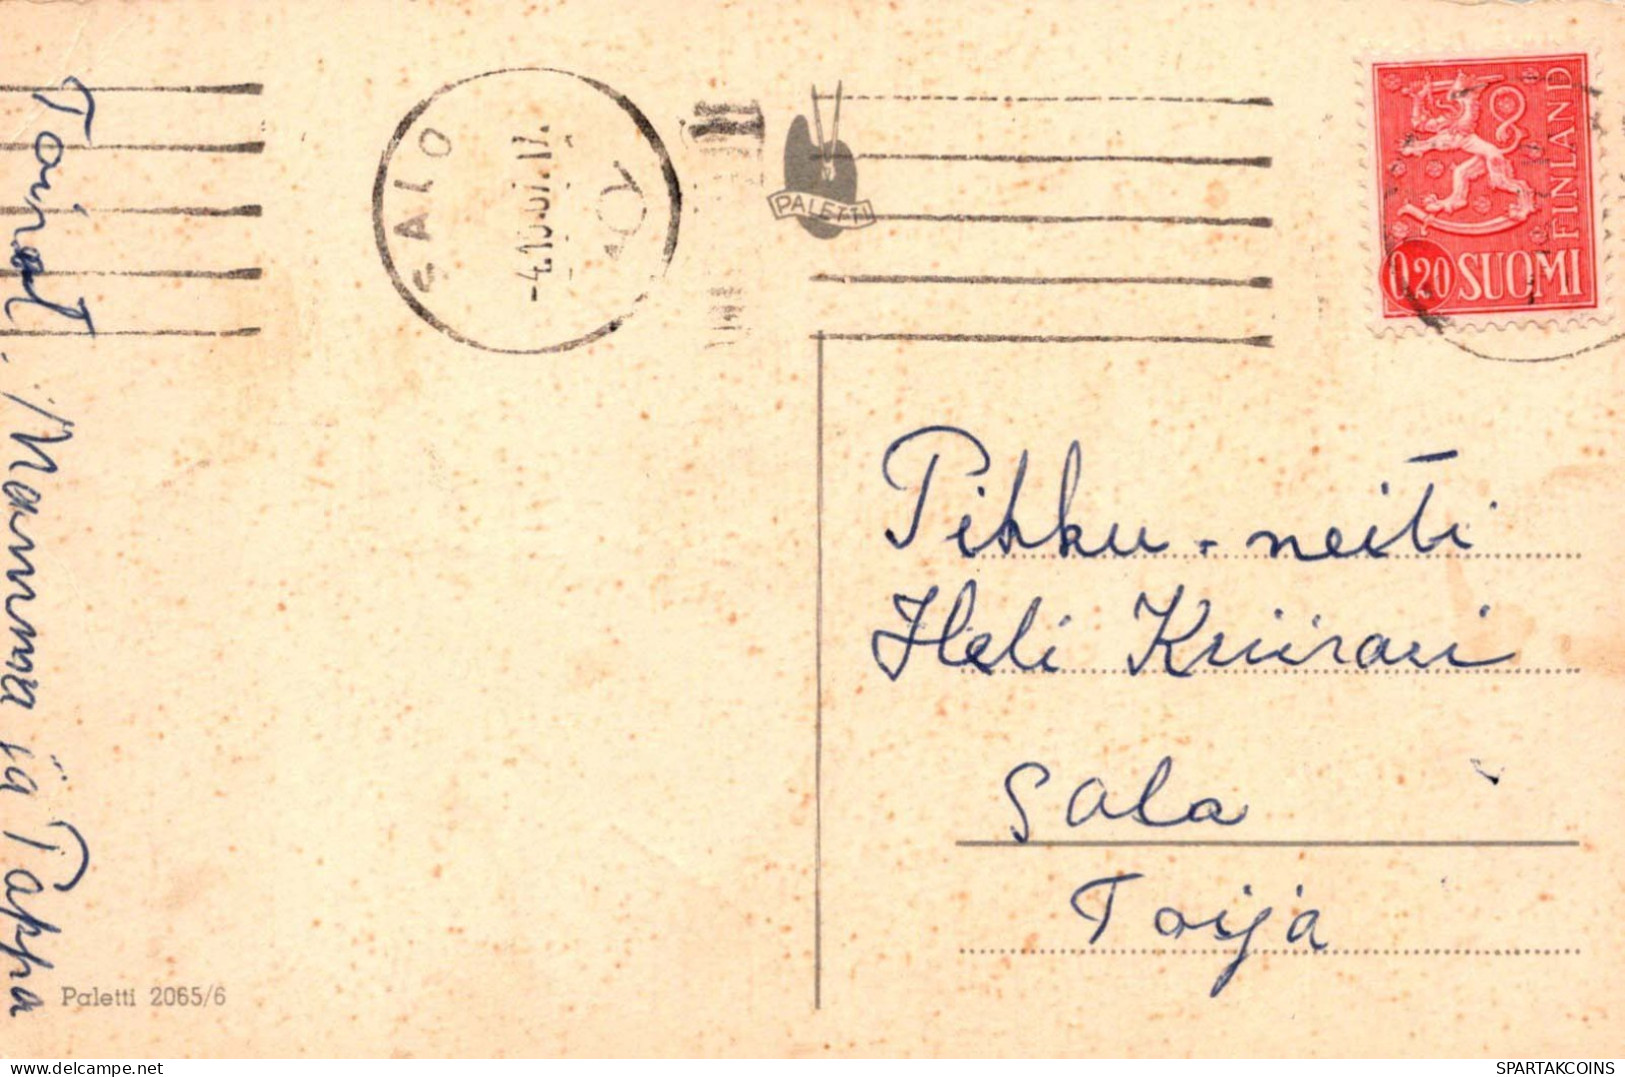 SALO
-4.10.67.17.
PALETTI
FINLAND
0,20 SUOMI
Toivot. Mamma ja Pappa
Pikku-neiti
Heli Kriirari
Sala
Toija
Paletti 2065/6
SPARTAKCOINS
delcampe.net